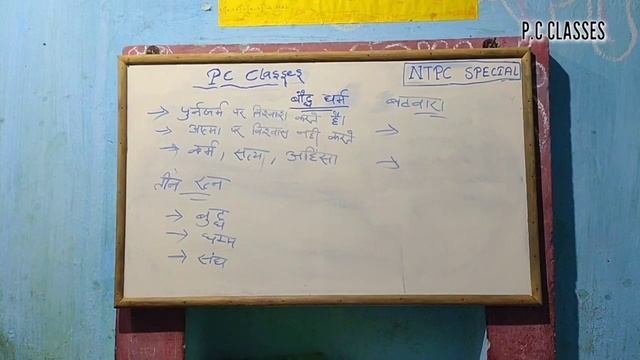 P.C CLASSES
PC Classes
NTPC SPECIAL
बौद्ध धर्म
बटवारा
→ पुर्नजर्म पर विश्वास करते है।
→ आत्मा पर विश्वास नही करते
→
→ कर्म, सत्य, अहिंसा
→
तीन रत्न
→ बुद्ध
→ धम्म
→ संघ